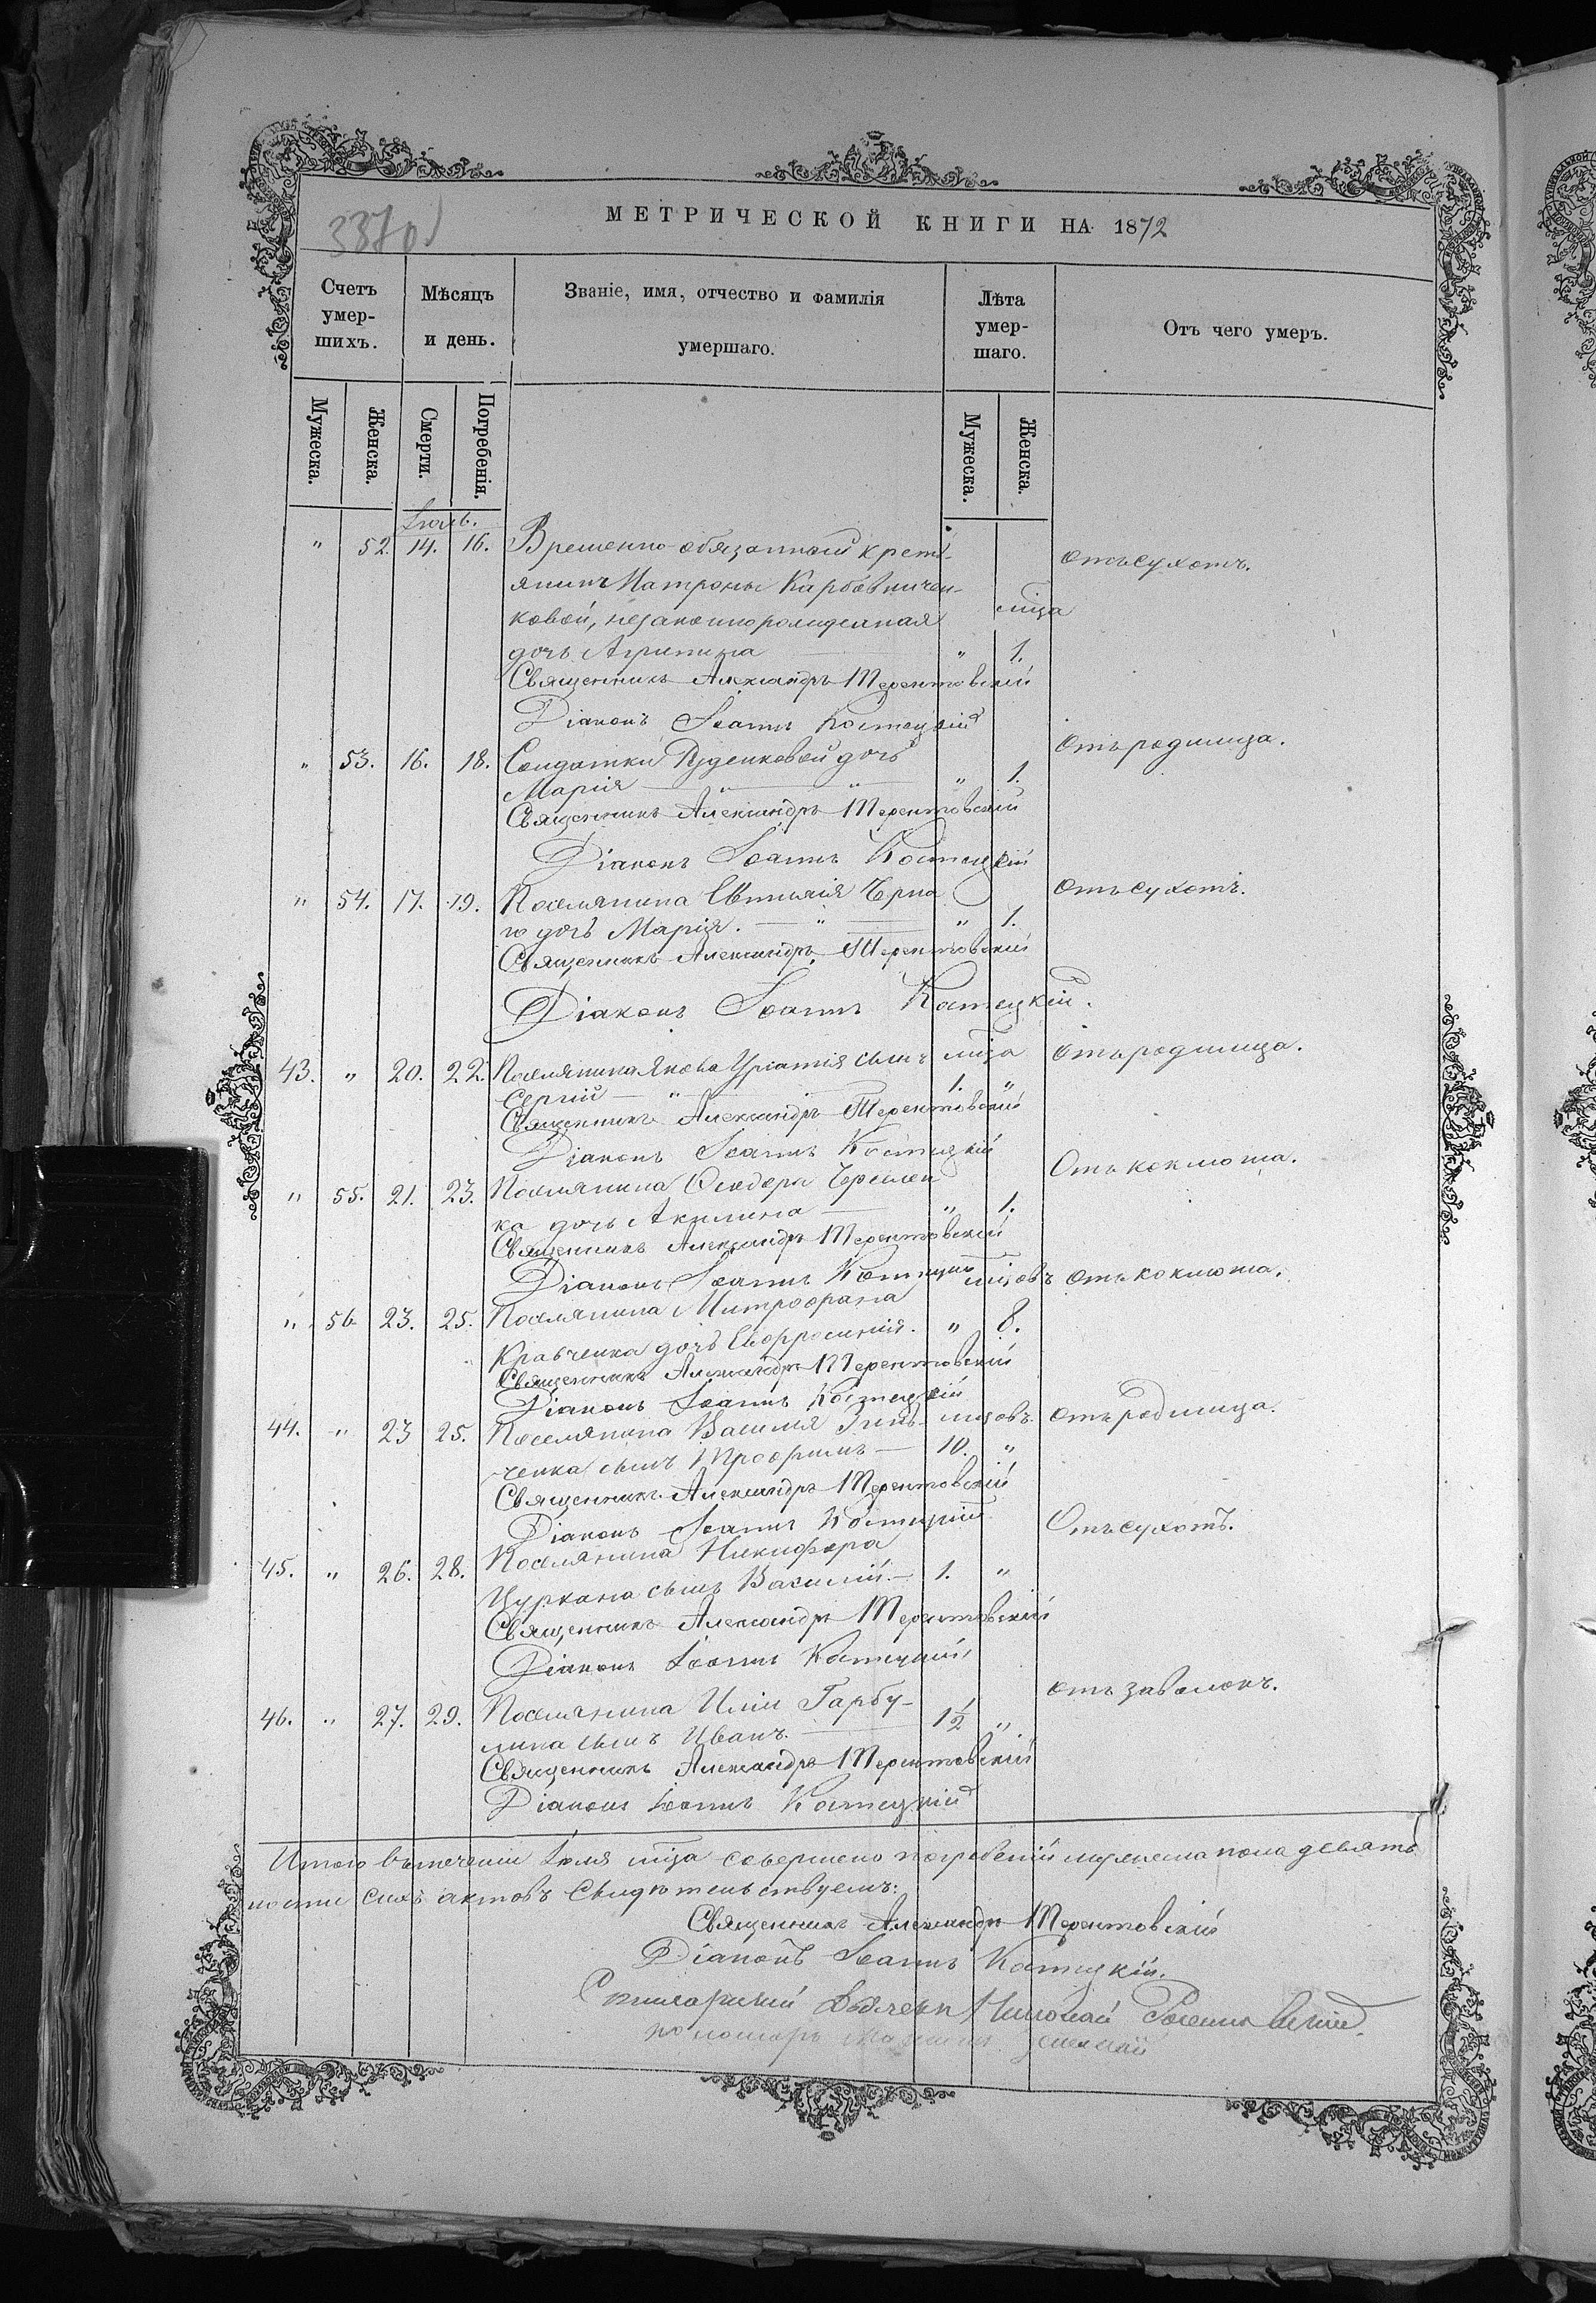 3370
МЕТРИЧЕСКОЙ КНИГИ НА 1872
Счетъ умер-шихъ.
Мѣсяцъ и день.
Званіе, имя, отчество и фамилія умершаго.
Лѣта умер-шаго.
Отъ чего умеръ.
Мужеска. Женска. Смерти. Погребенія. Мужеска. Женска.
Іюль.
" 52. 14. 16. Временно-обязанной крест- отъ сухотъ.
янки Матроны Карбовничен- мца
ковой, незаконнорожденная
дочь Агрипина " 1.
Священникъ Александръ Терентовскій
Діаконъ Іоаннъ Костецкій
" 53. 16. 18. Солдатки Руденковой дочь Отъ родимца.
Марія " " " 1.
Священникъ Александръ Терентовскій
Діаконъ Іоаннъ Костецкій
" 54. 17. 19. Поселянина Евтихія Черна отъ сухотъ.
го дочь Марія. " " 1.
Священникъ Александръ Терентовскій
Діаконъ Іоаннъ Костецкій.
43. " 20. 22. Поселянина Якова сынъ мца отъ родимца.
Сергій " 1. "
Священникъ Александръ Терентовскій
Діаконъ Іоаннъ Костецкій
" 55. 21. 23. Поселянина Ѳеодора Отъ коклюша.
ка дочь Акилина " 1.
Священникъ Александръ Терентовскій
Діаконъ Іоаннъ Костецкій мцовъ отъ коклюша.
" 56. 23. 25. Поселянина Митрофана
Кравченка дочь Евфросинія. " 8.
Священникъ Александръ Терентовскій
Діаконъ Іоаннъ Костецкій
44. " 23 25. Поселянина Василія Зинь- мцовъ. отъ родимца.
ченка сынъ Трофимъ 10. "
Священникъ Александръ Терентовскій
Діаконъ Іоаннъ Костецкій
45. " 26. 28. Поселянина Никифора Отъ сухотъ.
Цуркана сынъ Василій. 1. "
Священникъ Александръ Терентовскій
Діаконъ Іоаннъ Костецкій
46. " 27. 29. Поселянина Иліи Гарбу- отъ заволокъ.
лина сынъ Иванъ. 1½ "
Священникъ Александръ Терентовскій
Діаконъ Іоаннъ Костецкій
Итого въ теченіи Іюля мца совершено погребеній мужеска пола девять
ности сихъ актовъ Свидѣтельствуемъ:
Священникъ Александръ Терентовскій
Діаконъ Іоаннъ Костецкій.
Николай
пономарь